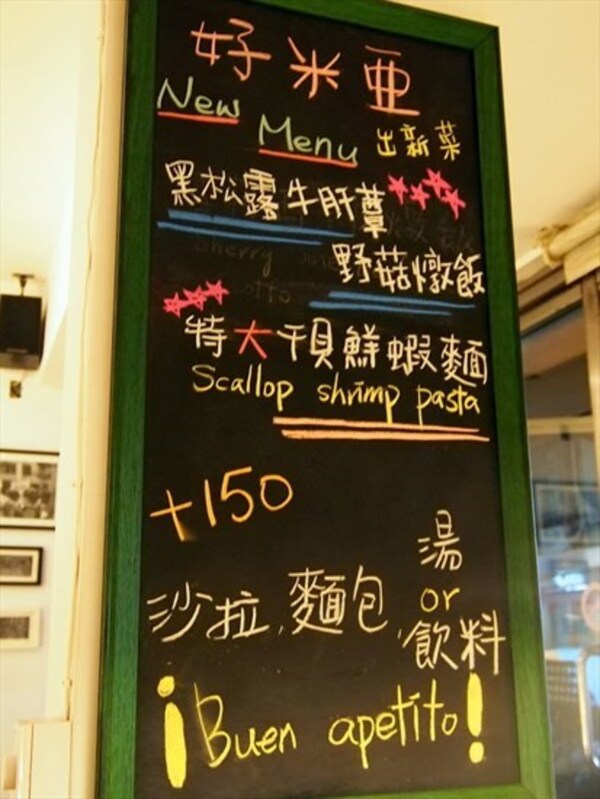 好米亜
New
Menu 出新菜
黑松露牛肝蕈
野菇燉飯
特大干貝鮮蝦麵
Scallop shrimp pasta
+150
湯
or
沙拉, 麵包, 飲料
¡Buen apetito!